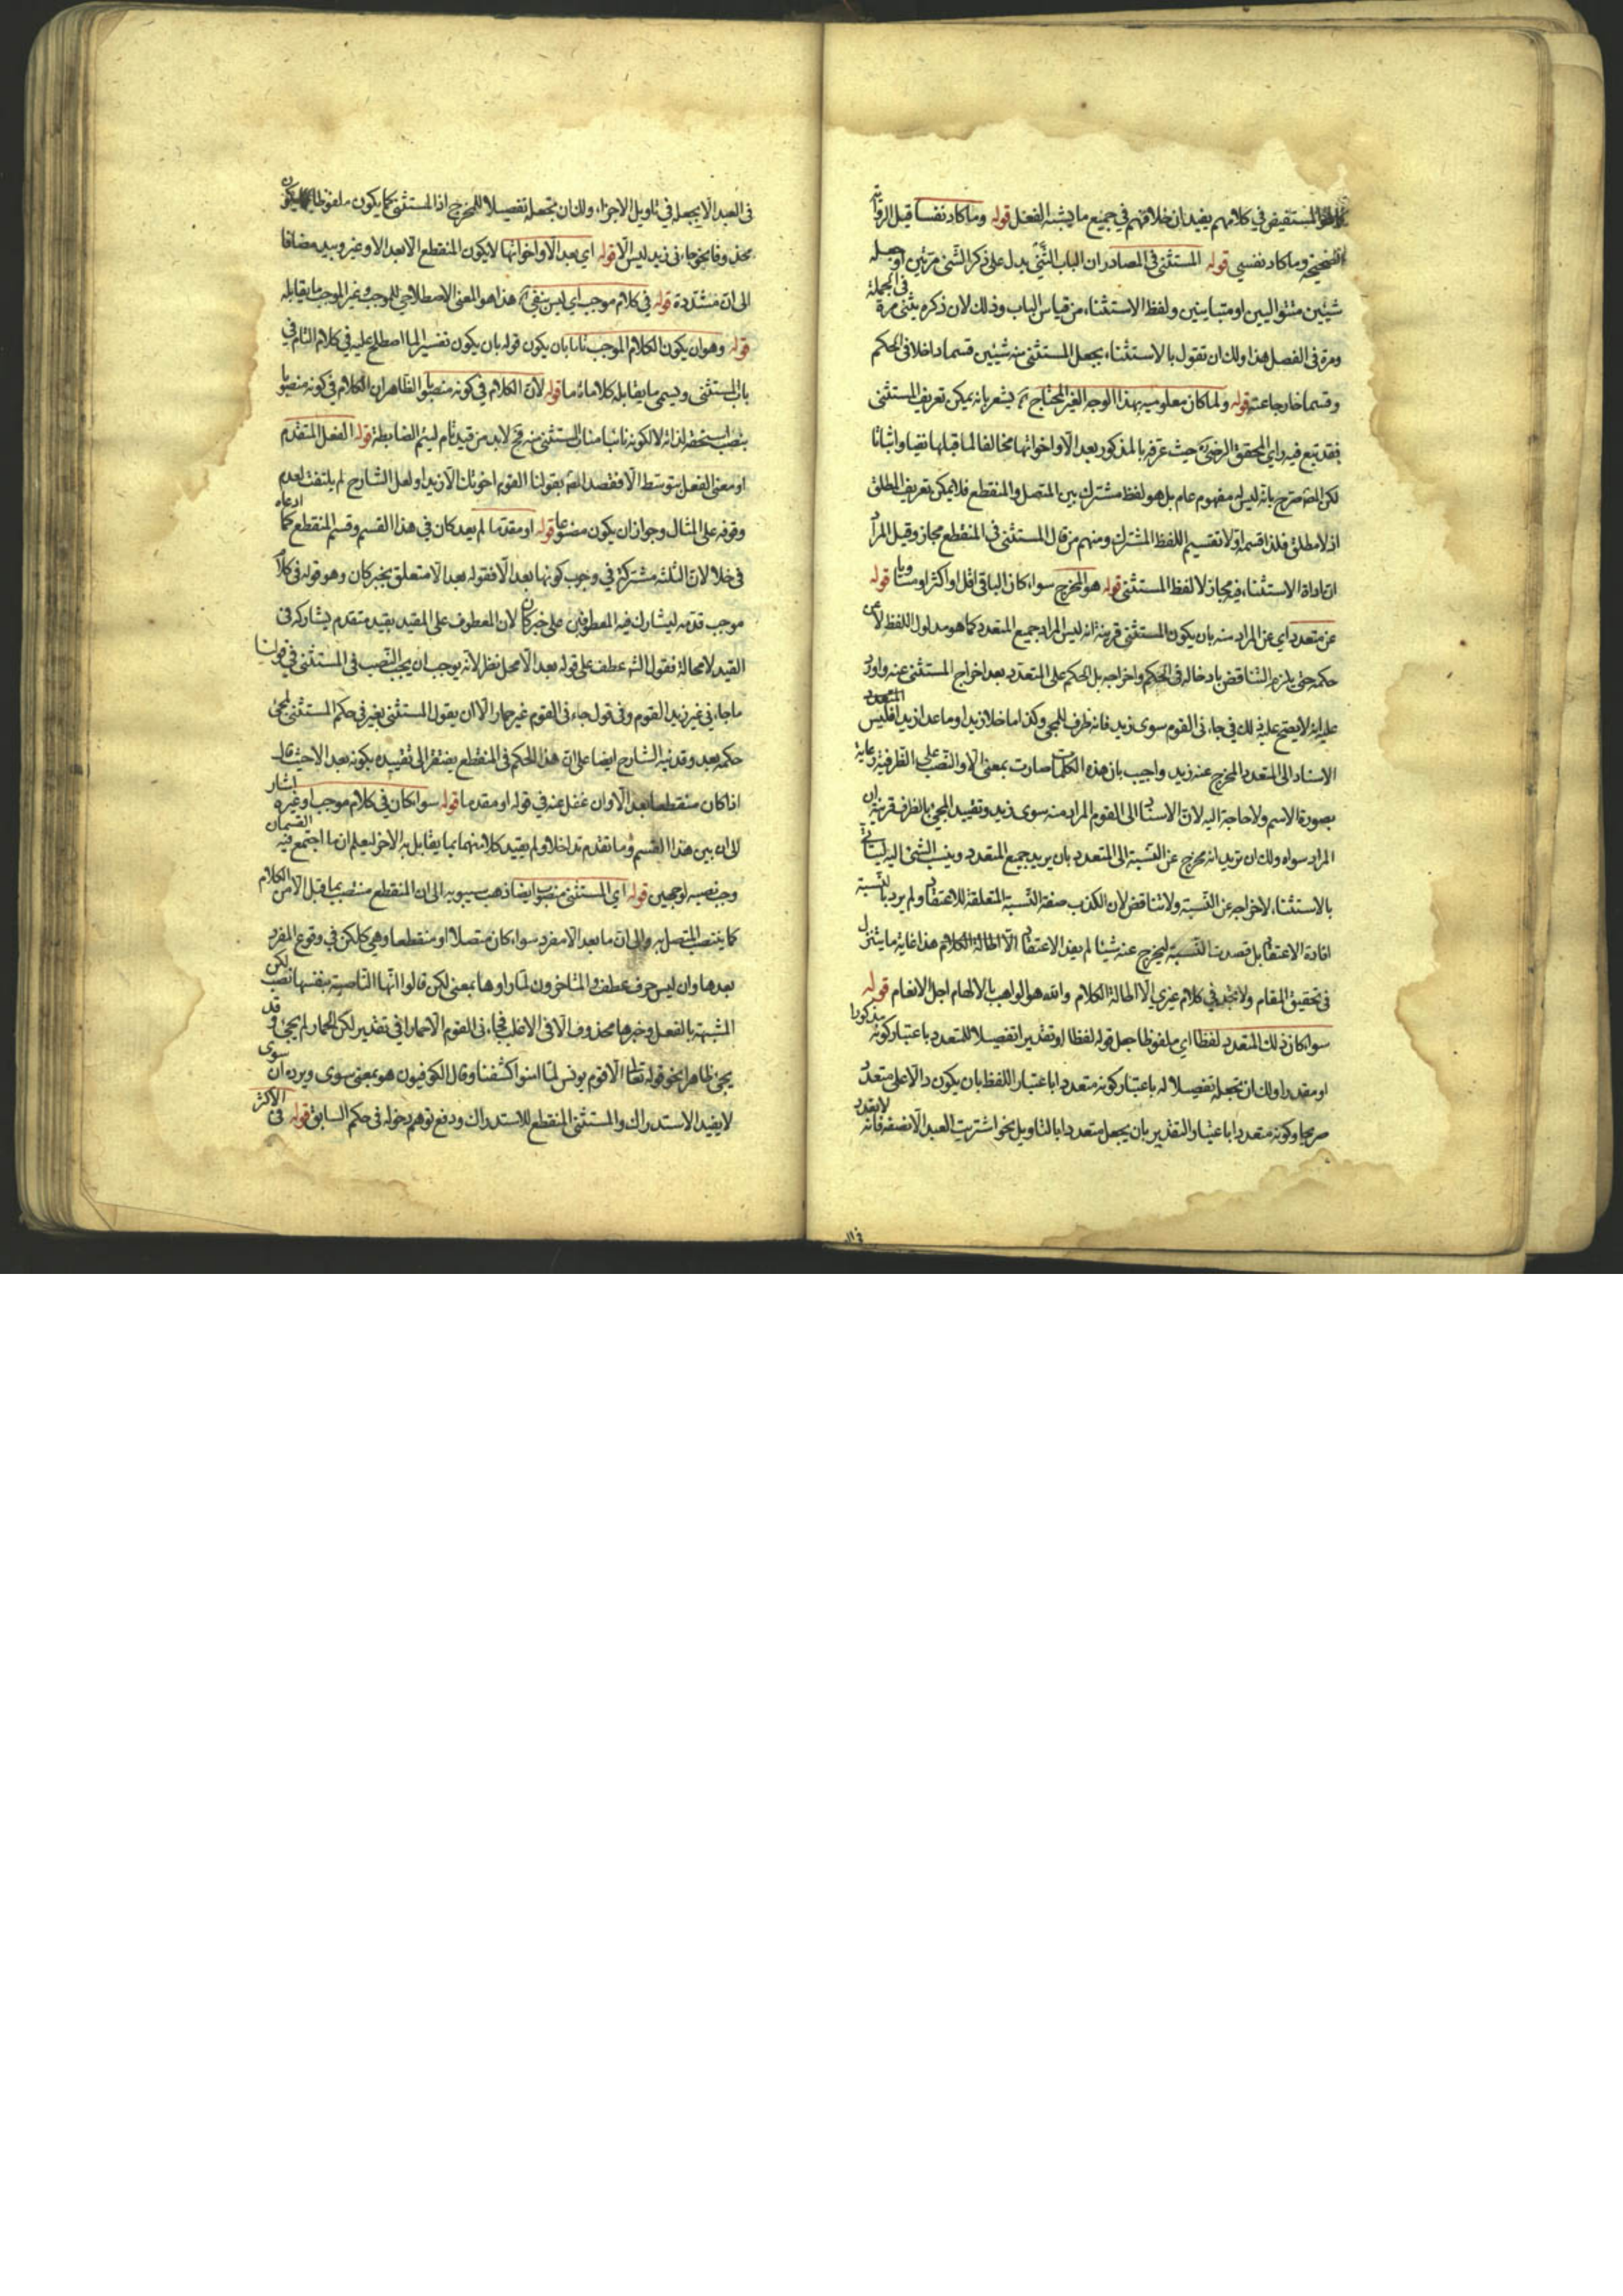 المستفيض في كلامهم يفيد ان خلافهم في جميع ما يشبه الفعل قوله وما كاد نفسا قيل الرواية
الصحيحة وما كاد نفسي قوله المستثنى في المصادر ان الباب الثَّنْيُ يدل على ذكر الشئ مرتين او جعله
شيئين متواليين او متباينين ولفظ الاستثناء من قياس الباب وذلك لان ذكره يثنى مرة في الجملة
ومرة في الفصل هذا ولك ان تقول بالاستثناء يجعل المستثنى منه شيئين قسما داخلا في الحكم
وقسما خارجا عنه قوله ولما كان معلوميته بهذا الوجه الغير المحتاج آه يشعر بانه يمكن تعريف المستثنى
فقد تبع فيه راي المحقق الرضي حيث عرفه بالمذكور بعد الا واخواتها مخالفا لما قبلها نفيا واثباتا
لكن المص صرح بانه ليس له مفهوم عام بل هو لفظ مشترك بين المتصل والمنقطع فلا يمكن تعريف المطلق
اذ لا مطلق فلذا قسمه اولا تقسيم اللفظ المشترك ومنهم من قال المستثنى في المنقطع مجاز وقيل المراد
ان اداة الاستثناء فيه مجاز لا لفظ المستثنى قوله هو المخرج سواء كان الباقي اقل او اكثر او مساويا قوله
عن متعدد اي عن المراد منه بان يكون المستثنى قرينة انه ليس المراد جميع المتعدد كما هو مدلول اللفظ لا عن
حكمه حتى يلزم التناقض بادخاله في الحكم واخراجه بل الحكم على المتعدد بعد اخراج المستثنى عنه واورد
عليه انه لا يصح على ذلك في جاءنى القوم سوى زيد فانه ظرف للمجئ وكذا ما خلا زيدا وما عدا زيدا فليس المتعدد
الاسناد الى المتعدد المخرج عنه زيد واجيب بان هذه الكلمات صارت بمعنى الا والنصب على الظرفية رعاية
بصورة الاسم ولا حاجة اليه لان الاسناد الى القوم المراد منه سوى زيد وتقييد المجئ بالظرف قرينة ان
المراد سواه ولك ان تريد انه مخرج عن النسبة الى المتعدد بان يريد جميع المتعدد وينسب الشئ اليه لياتي
بالاستثناء لاخراجه عن النسبة ولا تناقض لان الكذب صفة النسبة المتعلقة للاعتقاد ولم يرد بالنسبة
افادة الاعتقاد بل قصدت النسبة ليخرج عنه شيئا لم يفد الاعتقاد الا اطالة الكلام هذا غاية ما يتنزل
في تحقيق المقام ولا تجد في كلام غيري الا اطالة الكلام والله هو الواهب بالالهام اجل الانعام قوله
سواء كان ذلك المتعدد لفظا اي ملفوظا جعل قوله لفظا او تقديرا تفصيلا للمتعدد باعتبار كونه مذكورا
او مقدرا ولك ان تجعله تفصيلا له باعتبار كونه متعددا باعتبار اللفظ بان يكون دالا على متعدد
صريحا وكونه متعددا باعتبار التقدير بان يجعل متعددا بالتاويل نحو اشتريت العبد الا نصفه فانه لا يتعدد
في العبد الا بجعله في تاويل الاجزاء ولك ان تجعله تفصيلا للمخرج اذ المستثنى كما يكون ملفوظا يكون
محذوفا نحو جاءنى زيد ليس الا قوله اي بعد الا واخواتها لا يكون المنقطع الا بعد الا وغير وبيد مضافا
الى ان مشددة قوله في كلام موجب اي ليس بنفي آه هذا هو المعنى الاصطلاحي للموجب وغير الموجب ما يقابله
قوله وهو ان يكون الكلام الموجب تاما بان يكون قوله بان يكون تفسير لما اصطلح عليه في كلام التام في
باب المستثنى ويسمى ما يقابله كلاما ناقصا قوله لان الكلام في كونه منصوبا الظاهر ان الكلام في كونه منصوبا
بنصب استحقه لذاته لا لكونه نائبا مناب المستثنى منه فح لابد من قيد تام ليتم الضابطة قوله الفعل المتقدم
او معنى الفعل بتوسط الا فقصد المص بقولنا القوم اخوتك الا زيدا ولعل الشارح لم يلتفت لعدم
وقوفه على المثال وجواز ان يكون مصنوعا قوله او مقدما لم يعد كان في هذا القسم وقسم المنقطع كما اعاده
في خلا لان الثلثة مشتركة في وجوب كونها بعد الا فقوله بعد الا متعلق بخبر كان وهو قوله في كلام
موجب قدمه ليشارك فيه المعطوفين على خبر كان لان المعطوف على المقيد بقيد متقدم يشاركه في
القيد لا محالة فقول الش عطف على قوله بعد الا محل نظر لانه يوجب ان يجب النصب في المستثنى في قولنا
ما جاءني غير زيد القوم وفي قول جاءنى القوم غير حمار الا ان يقول المستثنى بغير في حكم المستثنى يجئ
حكمه بعد وقد نبه الشارح ايضا على ان هذا الحكم في المنقطع يفتقر الى تقييده بكونه بعد الا حيث قال
اذا كان منقطعا بعد الا وان غفل عنه في قوله او مقدما قوله سواء كان في كلام موجب او غيره اشار
الى ان بين هذا القسم وما تقدم تداخلا ولم يقيد كلا منهما بما يقابل به الاخر ليعلم ان ما اجتمع فيه القسمان
وجب نصبه لوجهين قوله اي المستثنى منصوب ايضا ذهب سيبويه الى ان المنقطع منتصب بما قبل الا من الكلام
كما ينتصب المتصل به والى ان ما بعد الا مفرد سواء كان متصلا او منقطعا وهي كلكن في وقوع المفرد
بعدها وان ليس حرف عطف والمتاخرون لما راوها بمعنى لكن قالوا انها الناصبة بنفسها نصب لكن
المشبهة بالفعل وخبرها محذوف الا في الاغلب فجاءنى القوم الا حمارا في تقدير لكن الحمار لم يجئ وقد
يجئ ظاهرا نحو قوله تعالى الا قوم يونس لما امنوا كشفنا وقال الكوفيون هو بمعنى سوى ويرده ان سوى
لا يفيد الاستدراك والمستثنى المنقطع للاستدراك ودفع توهم دخوله في حكم السابق قوله في الاكثر